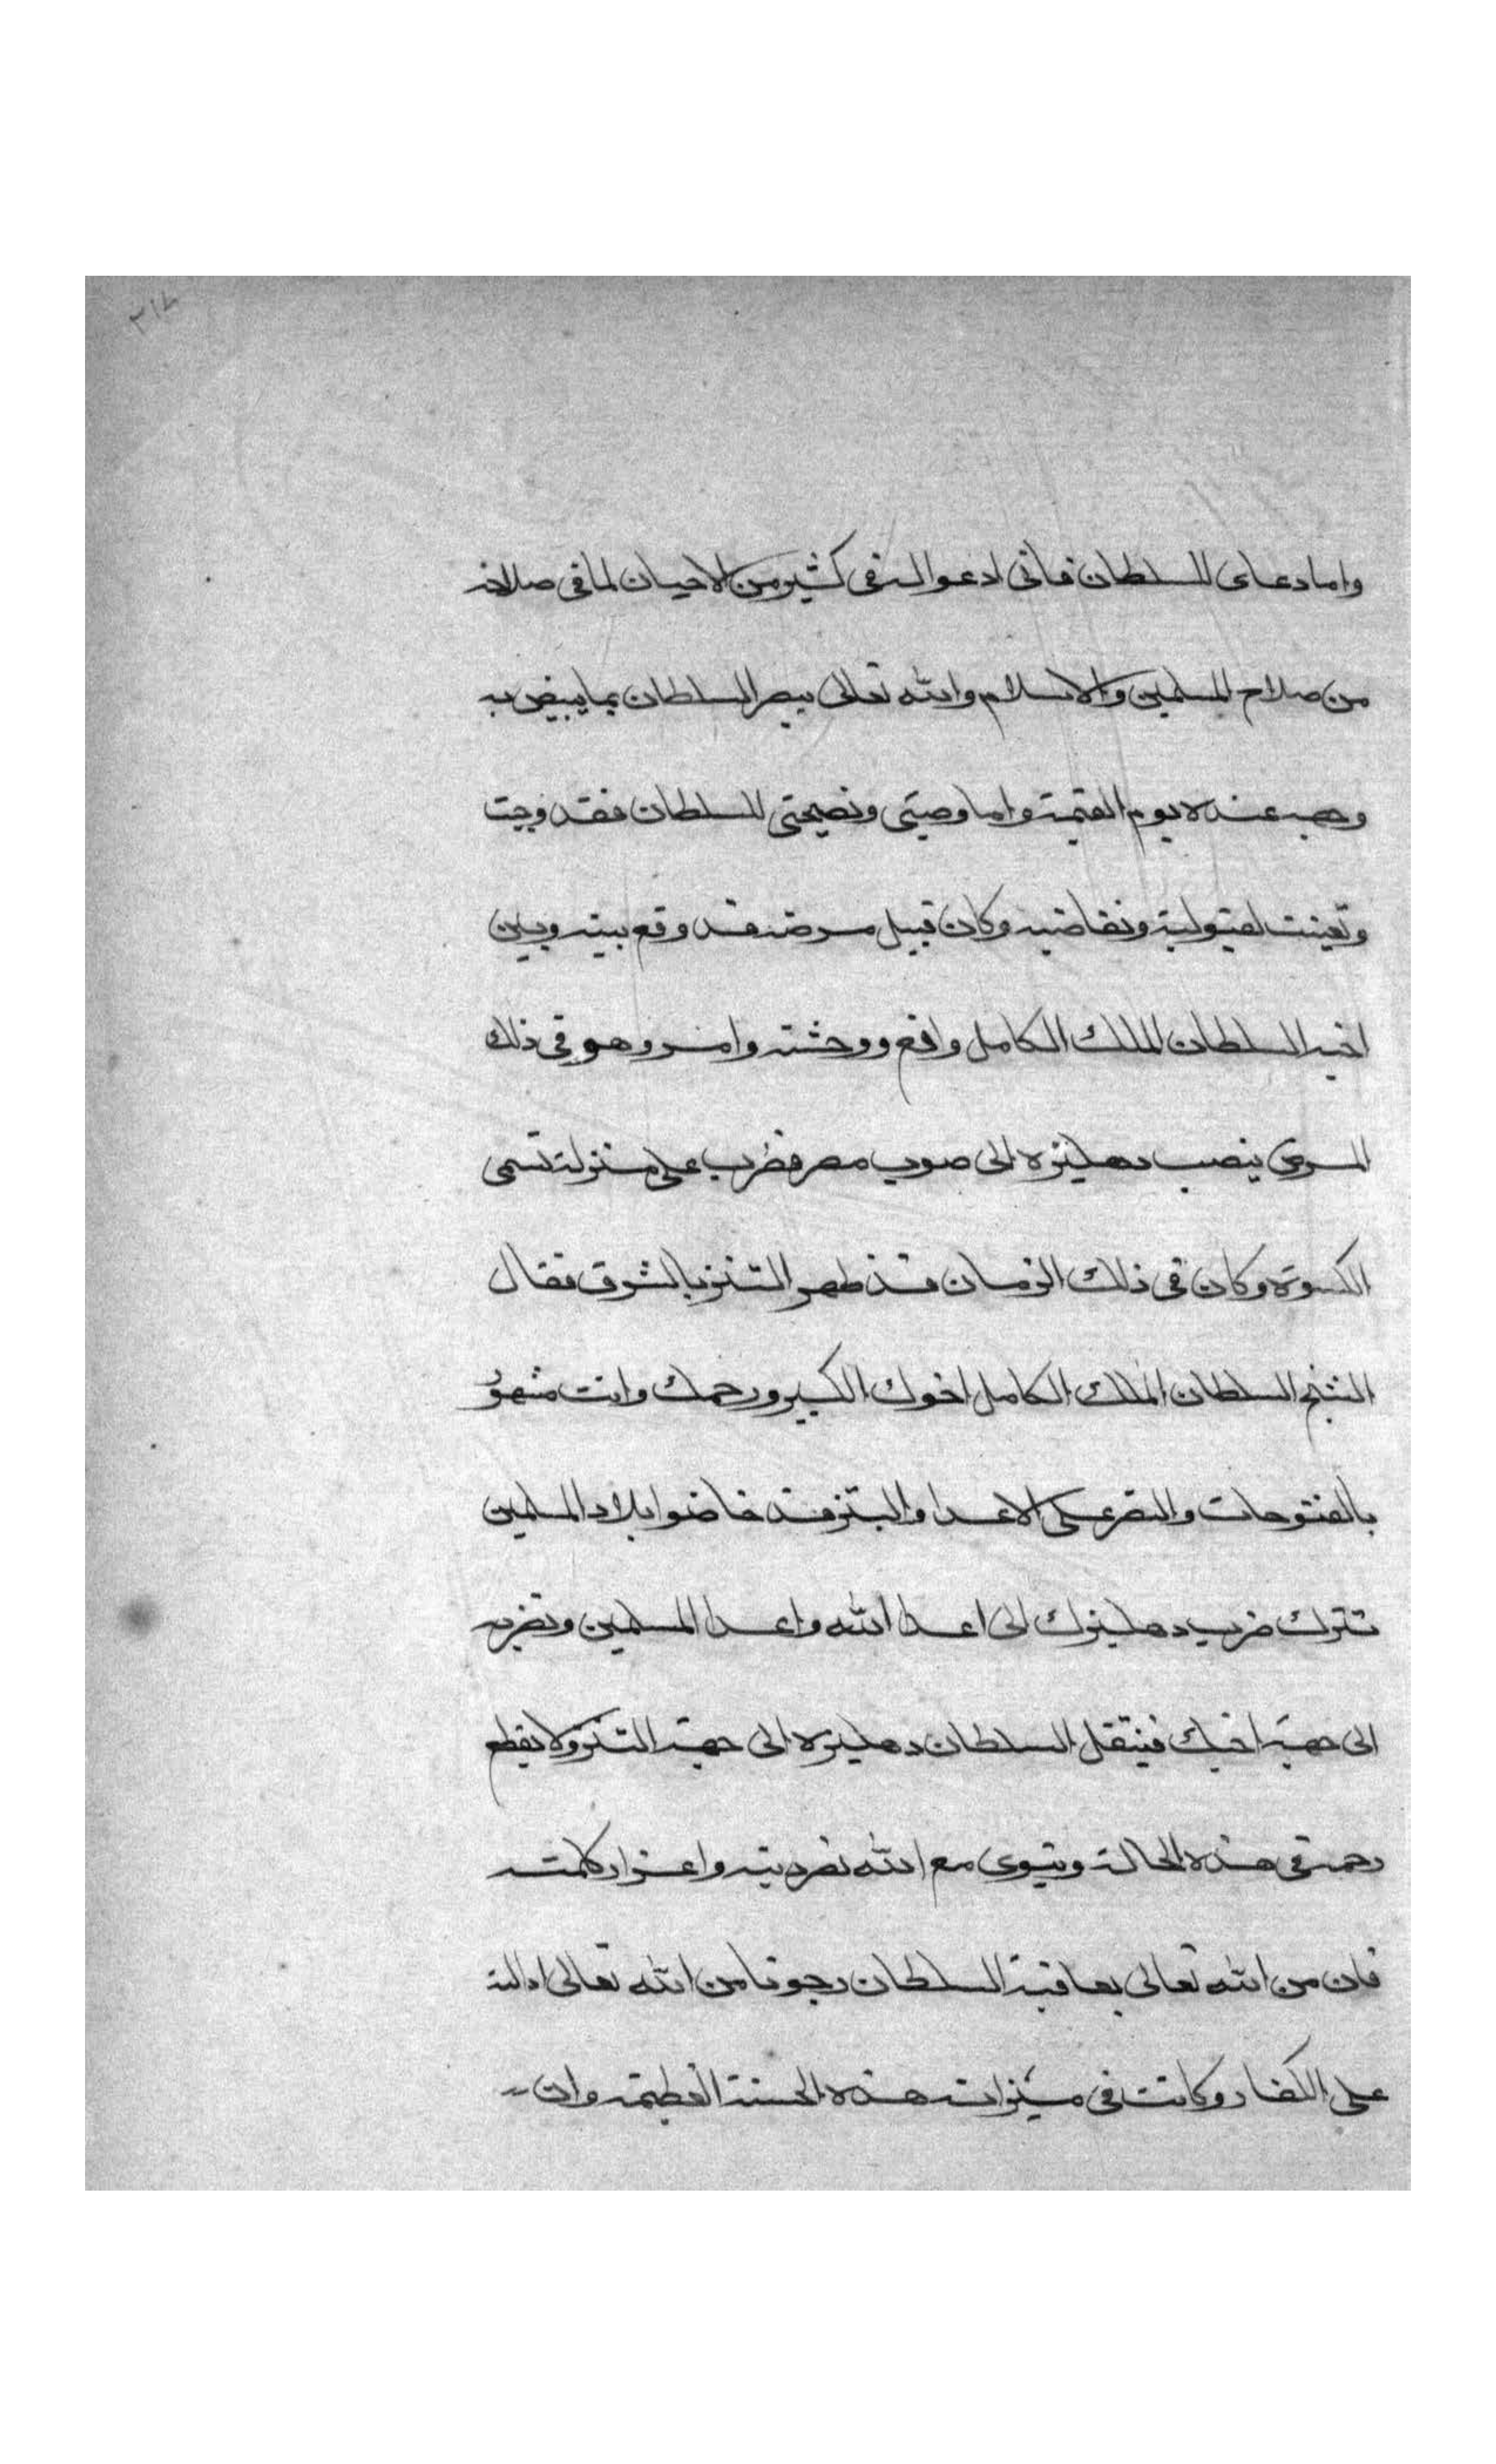 ٣١٧
واما دعاى للسلطان فانى ادعو له فى كثير من الاحيان لما فى صلاحه
من صلاح المسلمين والاسلام والله تعالى يبصر السلطان بما يبيض به
وجهه عنده يوم القيمة واما وصيتى ونصيحتى للسلطان فقد وجبت
وتعينت لقبوله وتقاضيه وكان قبيل مرضه قد وقع بينه وبين
اخيه السلطان الملك الكامل واقع ووحشة وامر وهو فى ذلك
المرض بنصب دهليزه الى صوب مصر فضرب على منزلة تسمى
الكسوة وكان فى ذلك الزمان قد ظهر التتر بالشرق فقال
الشيخ السلطان الملك الكامل اخوك الكبير ورحمك وانت مشهور
بالفتوحات والنصر على الاعدا والتتر قد خاضوا بلاد المسلمين
تترك ضرب دهليزك الى اعدا الله واعدا المسلمين وتضربه
الى جهة اخيك فينتقل السلطان دهليزه الى جهة التتر ولا يقطع
رحمه فى هذه الحالة وينوى مع الله نصر دينه واعزاز كلمته
فان من الله تعالى بعافية السلطان رجونا من الله تعالى ادالته
على الكفار وكانت فى ميزانه هذه الحسنة العظيمة وان